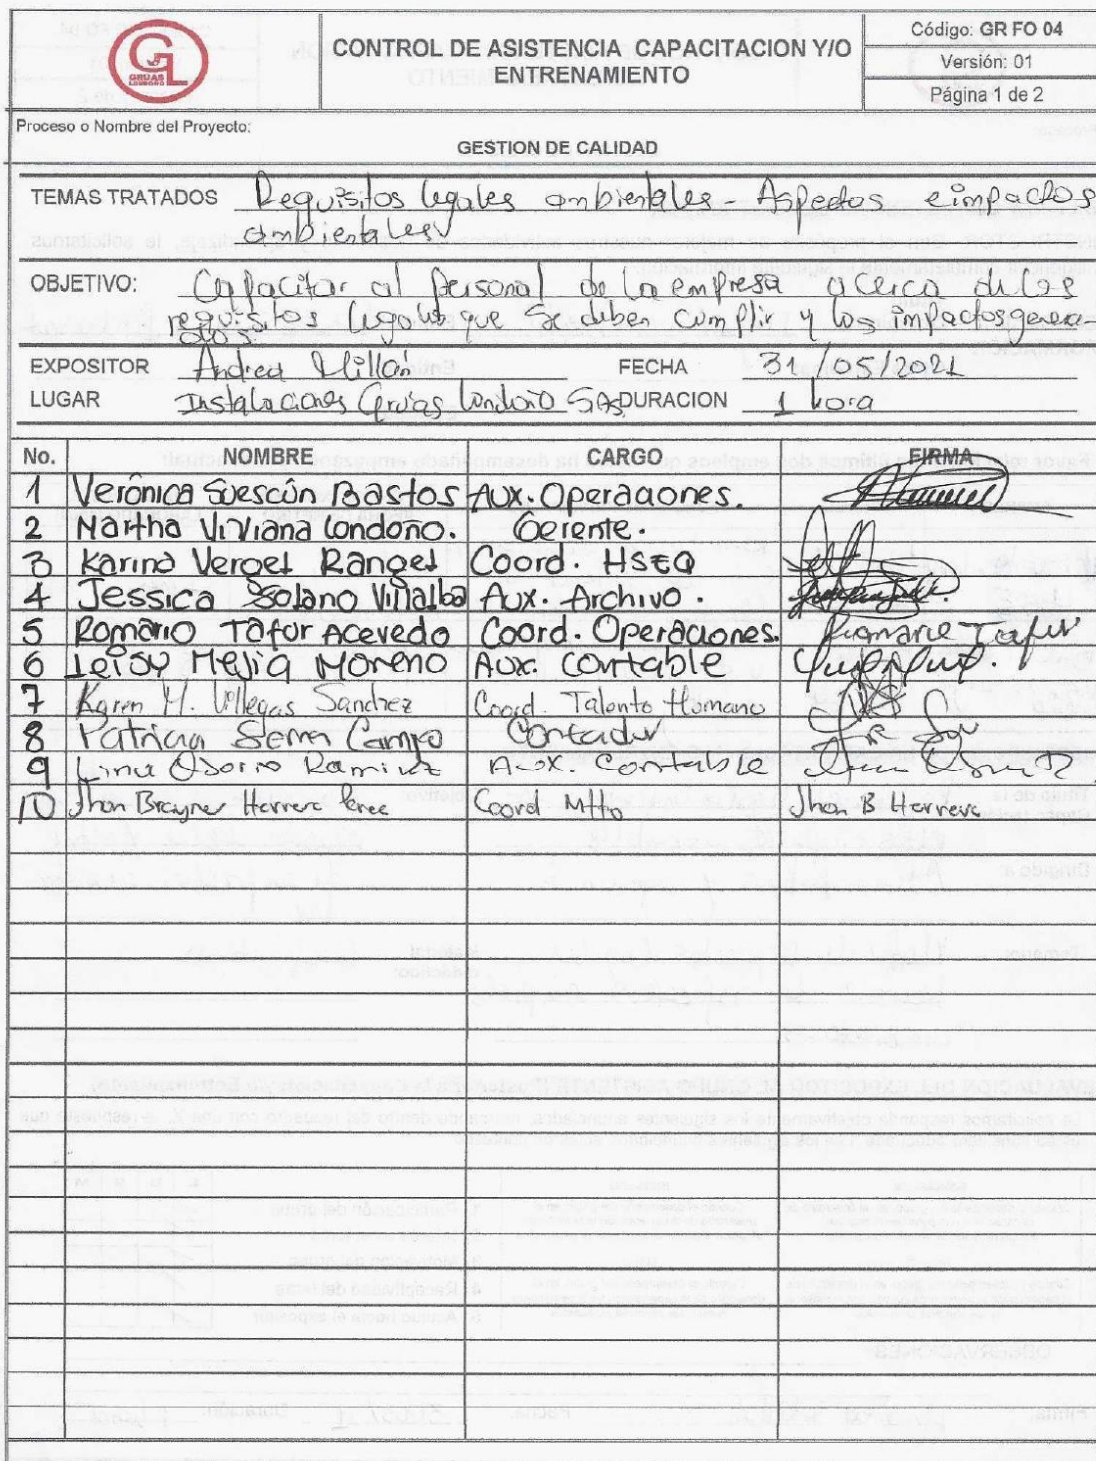 GL
GRUAS
LONDOÑO
CONTROL DE ASISTENCIA CAPACITACION Y/O
ENTRENAMIENTO
Código: GR FO 04
Versión: 01
Página 1 de 2
Proceso o Nombre del Proyecto:
GESTION DE CALIDAD
TEMAS TRATADOS Requisitos legales ambientales - Aspectos e impactos
ambientales
OBJETIVO: Capacitar al personal de la empresa acerca de los
requisitos legales que se deben cumplir y los impactos genera-
dos.
EXPOSITOR Andrea Millán FECHA 31/05/2021
LUGAR Instalaciones Gruas Londoño SAS DURACION 1 hora
No. NOMBRE CARGO FIRMA
1 Verónica Suescún Bastos Aux. Operaciones.
2 Martha Viviana Londoño. Gerente.
3 Karina Vergel Rangel Coord. HSEQ
4 Jessica Solano Villalba Aux. Archivo.
5 Romario Tafur Acevedo Coord. Operaciones. Romario Tafur
6 Leisy Mejia Moreno Aux. Contable
7 Karen M. Villegas Sanchez Coord. Talento Humano
8 Patricia Serna Campo Contador
9 Lina Osorio Ramirez Aux. Contable
10 Jhon Brayner Herrera Perez Coord Mtto Jhon B Herrera